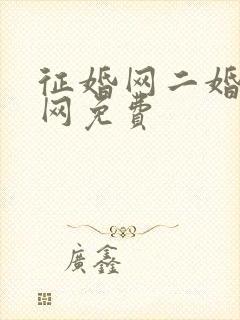 征婚网二婚
网免费
廣鑫